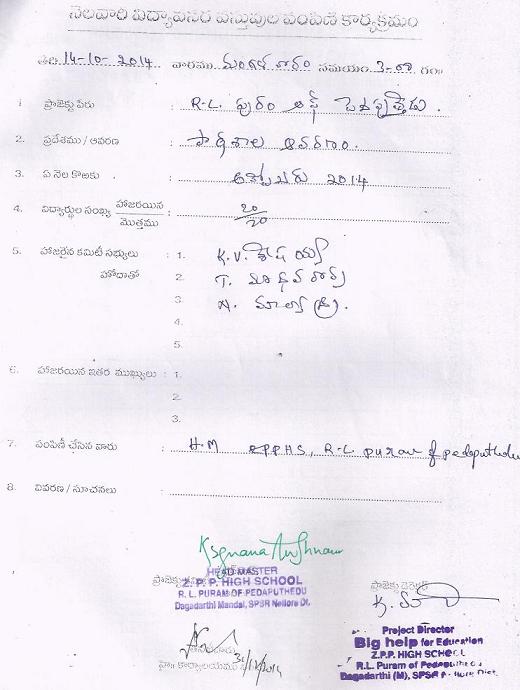 నెలవారి విద్యావసర వస్తువుల పంపిణీ కార్యక్రమం
తేది. 14-10-2014 వారము మంగళవారం సమయం 3-00 గం॥
1. ప్రాజెక్టు పేరు : R-L. పురం ఆఫ్ పెదపుత్తేడు.
2. ప్రదేశము / ఆవరణ : పాఠశాల ఆవరణం.
3. ఏ నెల కొఱకు : అక్టోబరు 2014
4. విద్యార్థుల సంఖ్య హాజరయిన / మొత్తము : 20/20
5. హాజరైన కమిటీ సభ్యులు : 1. K.V. శేషయ్య
హోదాతో 2. T. మాధవరావు
3.
4.
5.
6. హాజరయిన ఇతర ముఖ్యులు : 1.
2.
3.
7. పంపిణీ చేసిన వారు : H.M ZPPHS, R-L puram of pedaputhedu
8. వివరణ / సూచనలు :
HEAD MASTER
Z. P. P. HIGH SCHOOL
R. L. PURAM OF PEDAPUTHEDU
Dagadarthi Mandal, SPSR Nellore Dt.
ప్రాజెక్టు డైరెక్టర్
Project Director
Big help for Education
Z.P.P. HIGH SCHOOL
R.L. Puram of Pedaputhedu
Dagadarthi (M), SPSR Nellore Dist.